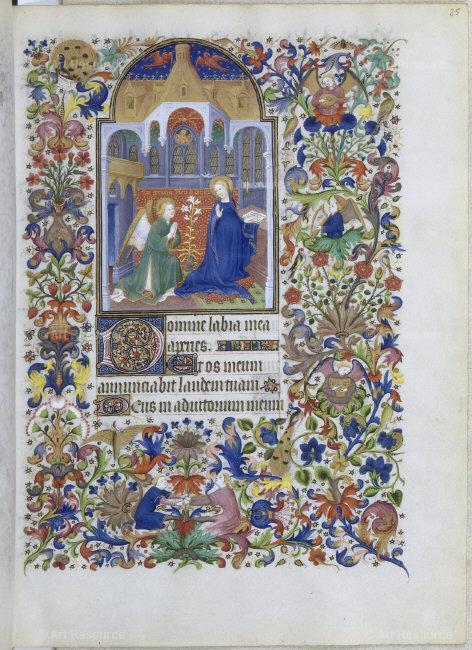 25
Domine labia mea
aperies.
Et os meum
annunciabit laudem tuam.
Deus in adiutorium meum
Art Resource
Art Resource